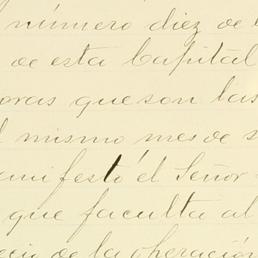 número diez de
de esta Capital
oras que son las
mismo mes de s
anifestó el Señor
que faculta al
ecio de la operación